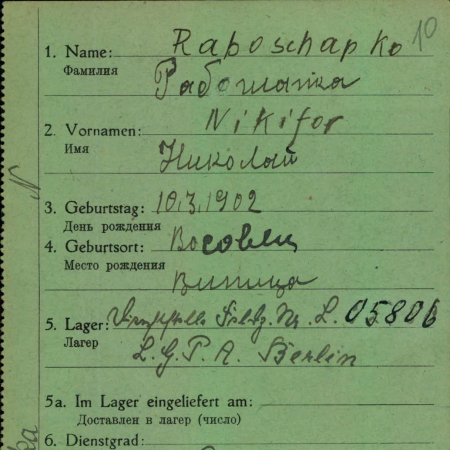 10
1. Name: Raboschapko
Фамилия Рабошапка
2. Vornamen: Nikifor
Имя Николай
3. Geburtstag: 10.3.1902
День рождения
4. Geburtsort:
Место рождения
5. Lager: Nr. L. 05806
Лагер L. G. P. A. Berlin
5a. Im Lager eingeliefert am:
Доставлен в лагер (число)
6. Dienstgrad: